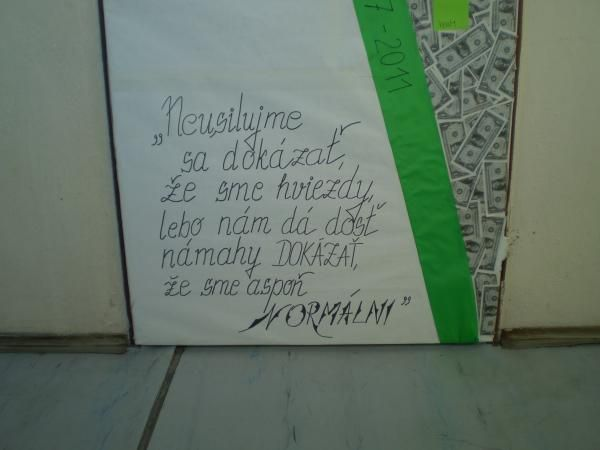 7 - 2011
„Neusilujme
sa dokázať,
že sme hviezdy,
lebo nám dá dosť
námahy DOKÁZAŤ,
že sme aspoň
NORMÁLNI”